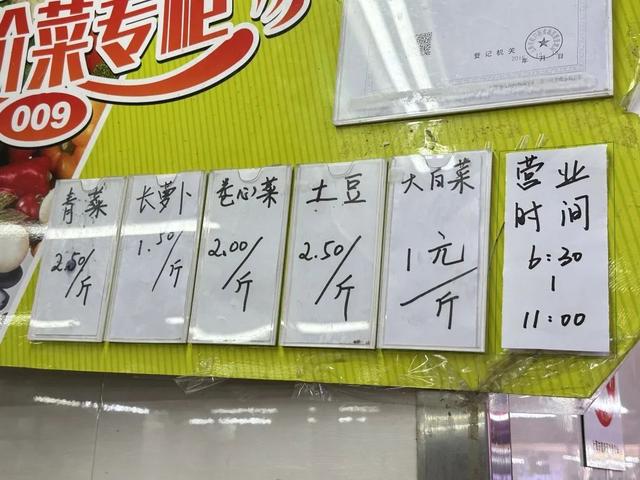 价菜专柜
009
登记机关
年 月 日
青菜
2.50/斤
长萝卜
1.50/斤
卷心菜
2.00/斤
土豆
2.50/斤
大白菜
1元/斤
营业
时间
6:30
|
11:00